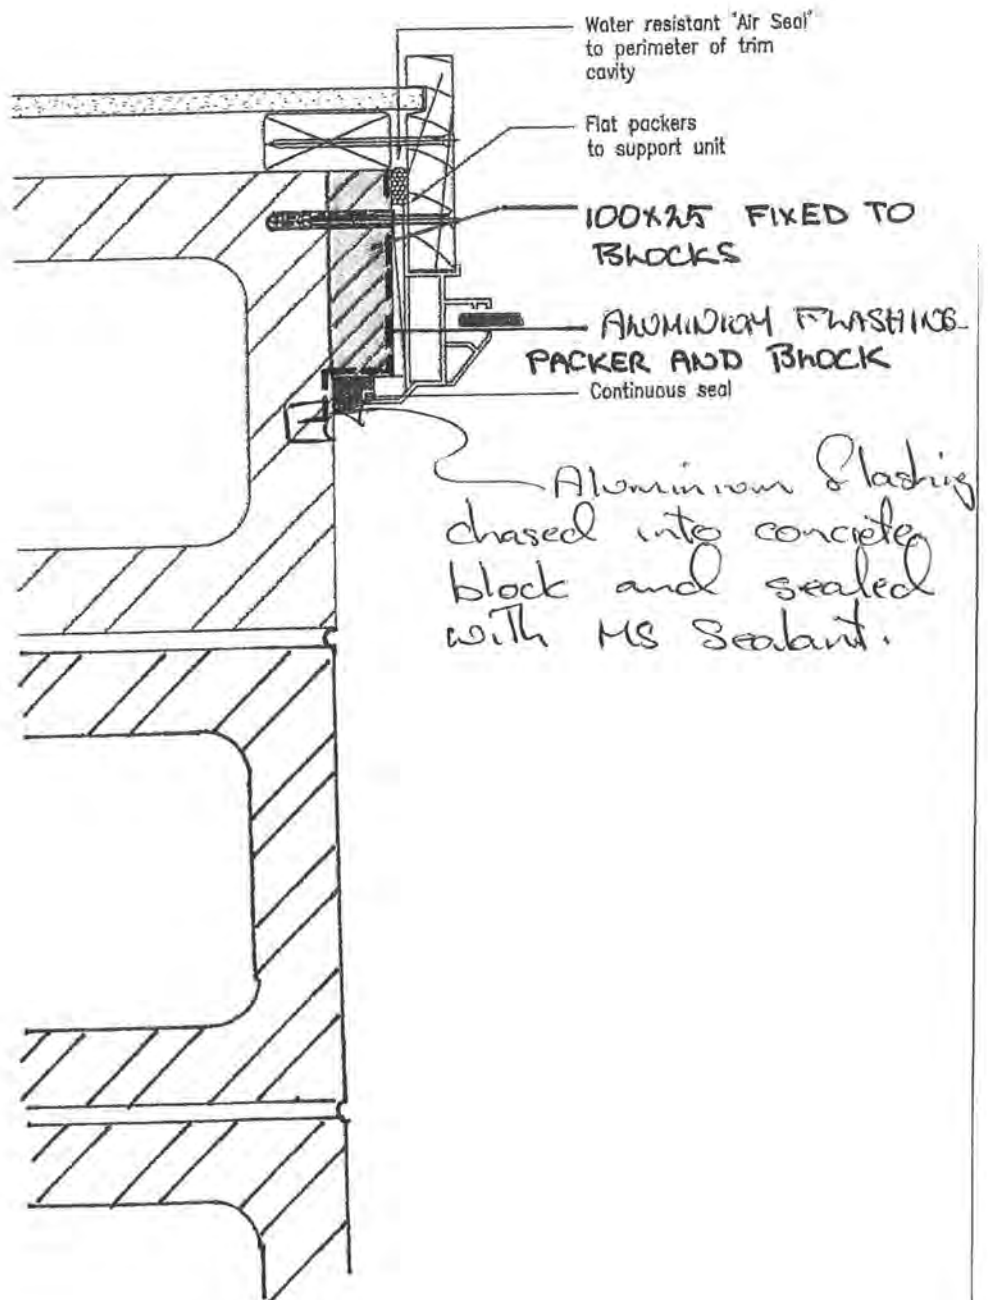 Water resistant "Air Seal"
to perimeter of trim
cavity
Flat packers
to support unit
100x25 FIXED TO
BLOCKS
ALUMINIUM FLASHING
PACKER AND BLOCK
Continuous seal
Aluminium flashing
chased into concrete
block and sealed
with MS Sealant.